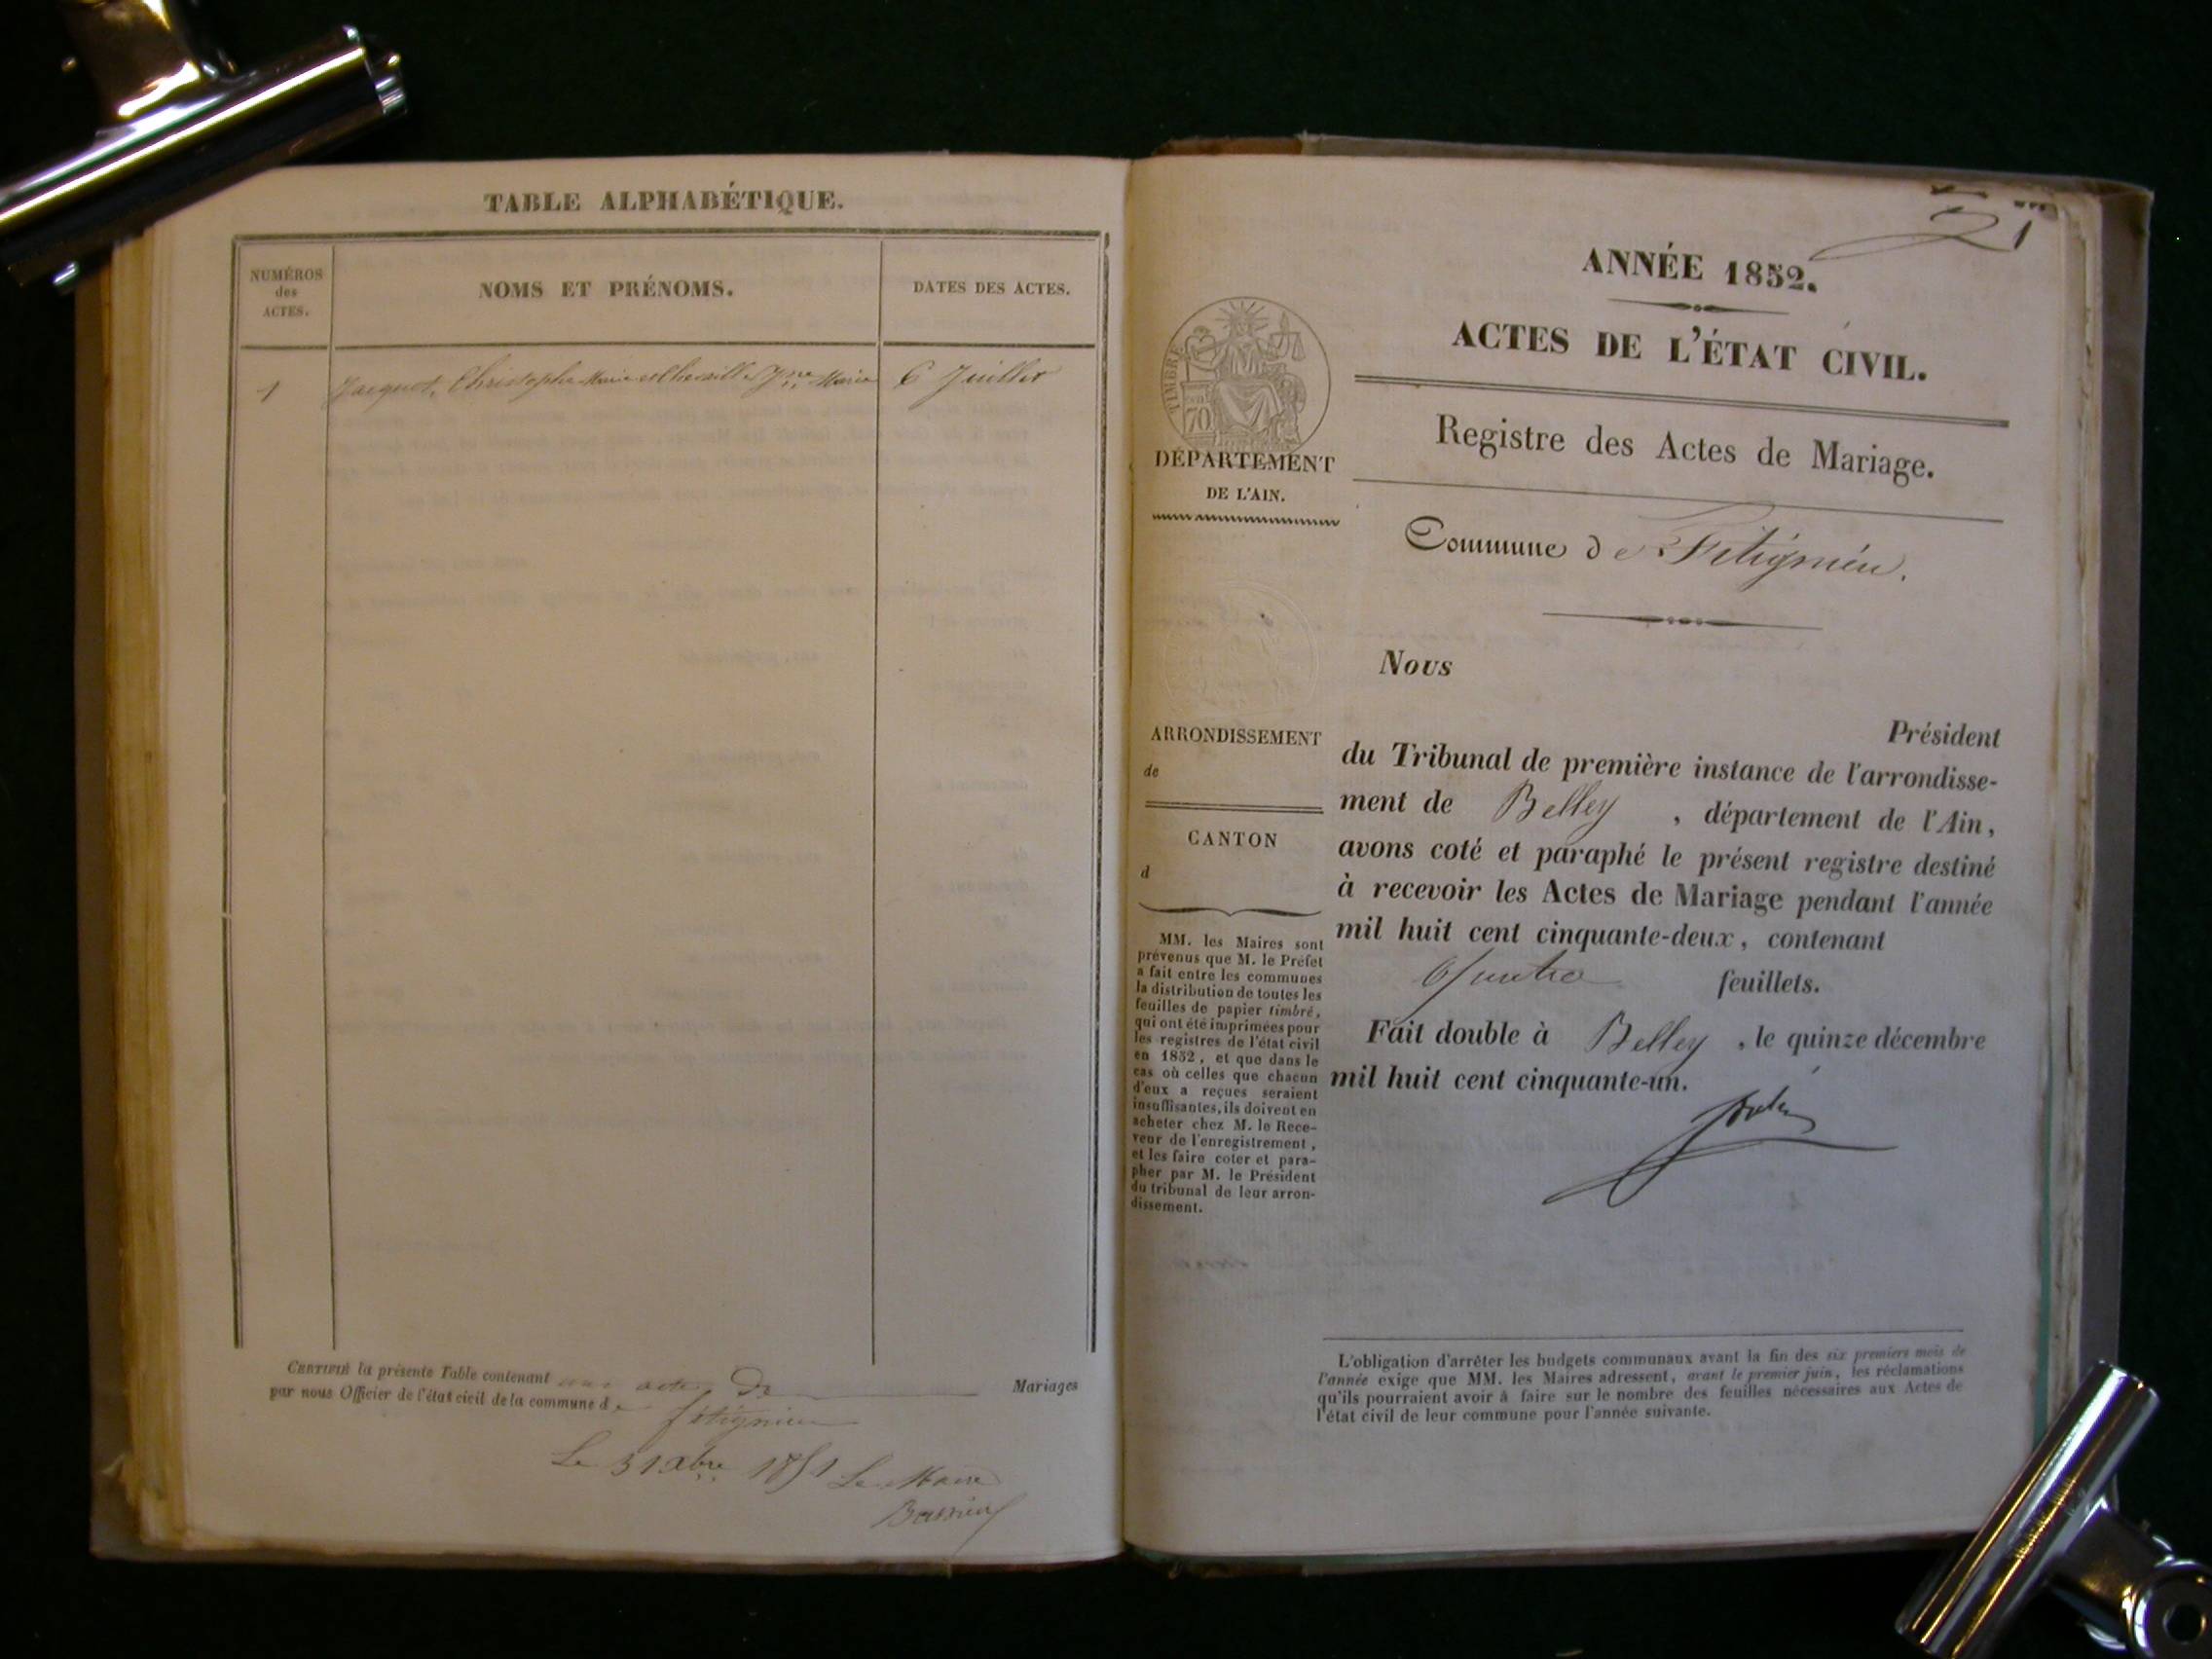 TABLE ALPHABÉTIQUE.
NUMÉROS
des
ACTES.
NOMS ET PRÉNOMS.
DATES DES ACTES.
1 Jacquet, Christophe Marie et Marie 6 Juillet
CERTIFIÉ la présente Table contenant un acte De Mariages
par nous Officier de l'état civil de la commune de fitignieu
Le 31 Xbre 1851 Le Maire
1
ANNÉE 1852.
ACTES DE L'ÉTAT CIVIL.
Registre des Actes de Mariage.
Commune de Fitignieu.
TIMBRE
70
DÉPARTEMENT
DE L'AIN.
ARRONDISSEMENT
de
CANTON
d
MM. les Maires sont
prévenus que M. le Préfet
a fait entre les communes
la distribution de toutes les
feuilles de papier timbré,
qui ont été imprimées pour
les registres de l'état civil
en 1852, et que dans le
cas où celles que chacun
d'eux a reçues seraient
insuffisantes, ils doivent en
acheter chez M. le Rece-
veur de l'enregistrement,
et les faire coter et para-
pher par M. le Président
du tribunal de leur arron-
dissement.
Nous
Président
du Tribunal de première instance de l'arrondisse-
ment de Belley, département de l'Ain,
avons coté et paraphé le présent registre destiné
à recevoir les Actes de Mariage pendant l'année
mil huit cent cinquante-deux, contenant
Quatre feuillets.
Fait double à Belley, le quinze décembre
mil huit cent cinquante-un.
L'obligation d'arrêter les budgets communaux avant la fin des six premiers mois de
l'année exige que MM. les Maires adressent, avant le premier juin, les réclamations
qu'ils pourraient avoir à faire sur le nombre des feuilles nécessaires aux Actes de
l'état civil de leur commune pour l'année suivante.